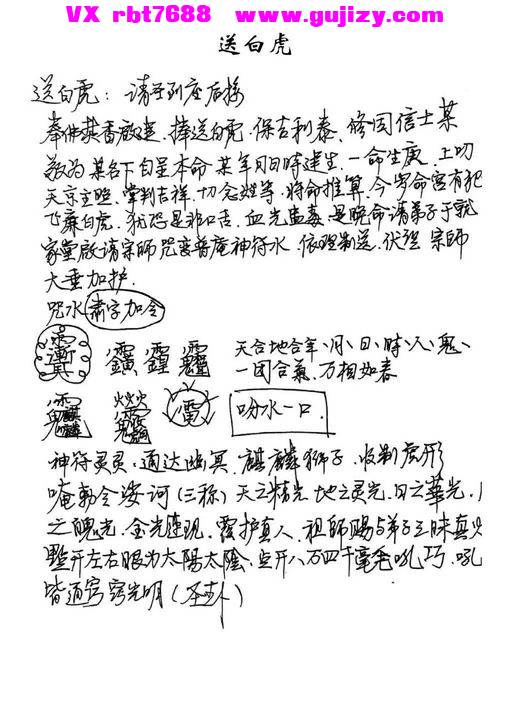 VX rbt7688 www.gujizy.com
送白虎
送白虎：请圣到座后接
奉佛焚香启建、捧送白虎、保吉利泰、修因信士某
敬为某名下自呈本命某年月日时建生、一命生庚、上叨
天京主照、掌判吉祥、切念姓等、将命推算、今岁命宫有犯
飞廉白虎、犹恐是非口舌、血光蛊毒、是晚命请弟子于就
家堂启请宗师咒变普庵神符水、依理制送、伏望宗师
大垂加护.
咒水 肃字加令
天合地合年、月、日、時、人、鬼、
一团合氣、万相如春
吩水一口.
神符灵灵、通达幽冥、麒麟狮子、收制虎形
唵勅令娑诃(三称)天之精光 地之灵光、日之華光、月
之魄光、金光速现、覆护真人、祖師赐与弟子三昧真火
點开左右眼为太陽太陰、点开八万四千毫毛吼巧、吼
皆通窍窍光明(圣卦)